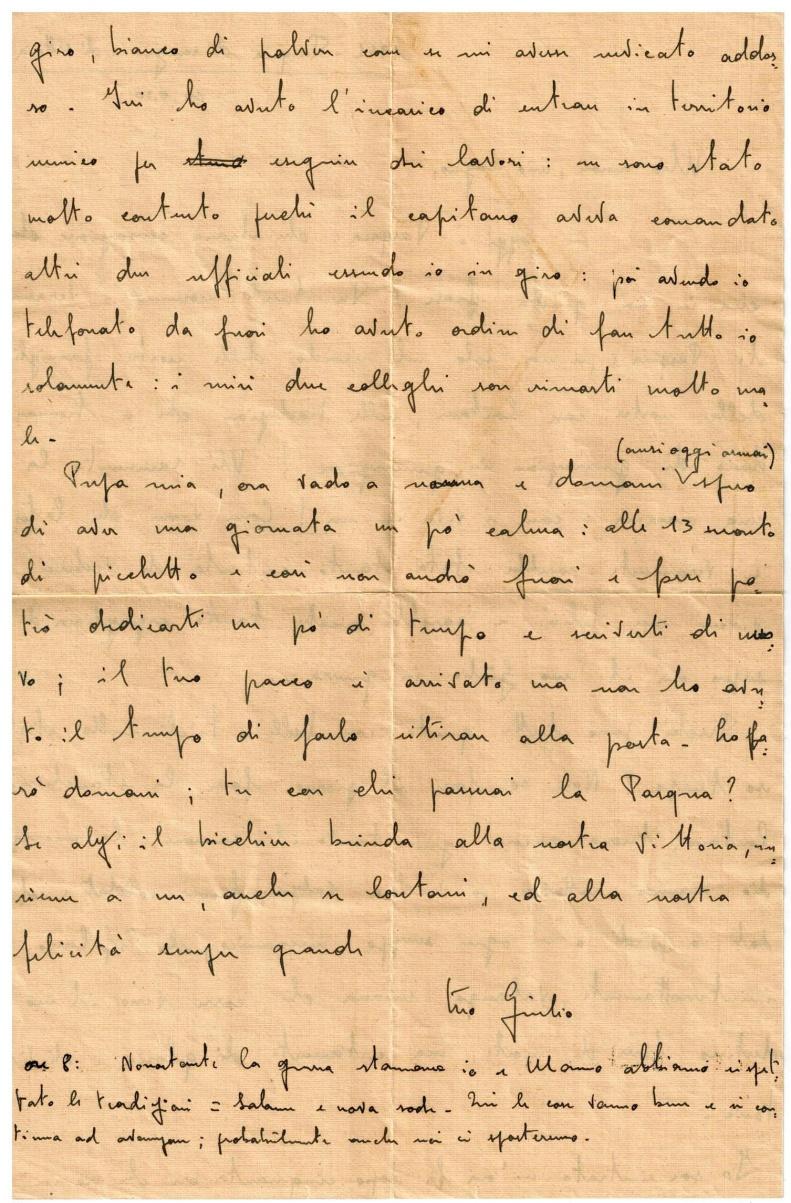 giro, bianco di polvere come se mi avesse nevicato addos=
so - Ieri ho avuto l'incarico di entrare in territorio
nemico per eseguire dei lavori : ne sono stato
molto contento perchè il capitano aveva comandato
altri due ufficiali essendo io in giro : poi avendo io
telefonato da fuori ho avuto ordine di fare tutto io
solamente : i miei due colleghi son rimasti molto ma=
le -
(anzi oggi ormai)
Pupa mia, ora vado a nanna e domani spero
di aver una giornata un pò calma : alle 13 monto
di picchetto e così non andrò fuori e pure po=
trò dedicarti un pò di tempo e scriverti di nuo=
vo ; il tuo pacco è arrivato ma non ho avu=
to il tempo di farlo ritirare alla posta - Lo fa=
rò domani ; tu con chi passerai la Pasqua?
Se alzi il bicchiere brinda alla nostra Vittoria, in=
sieme a me, anche se lontani, ed alla nostra
felicità sempre grande
tuo Giulio
ore 8: Nonostante la guerra stamane io e Memo abbiamo rispet=
tato le tradizioni = Salame e uova sode - Qui le cose vanno bene e si con=
tinua ad avanzare ; probabilmente anche noi ci sposteremo.